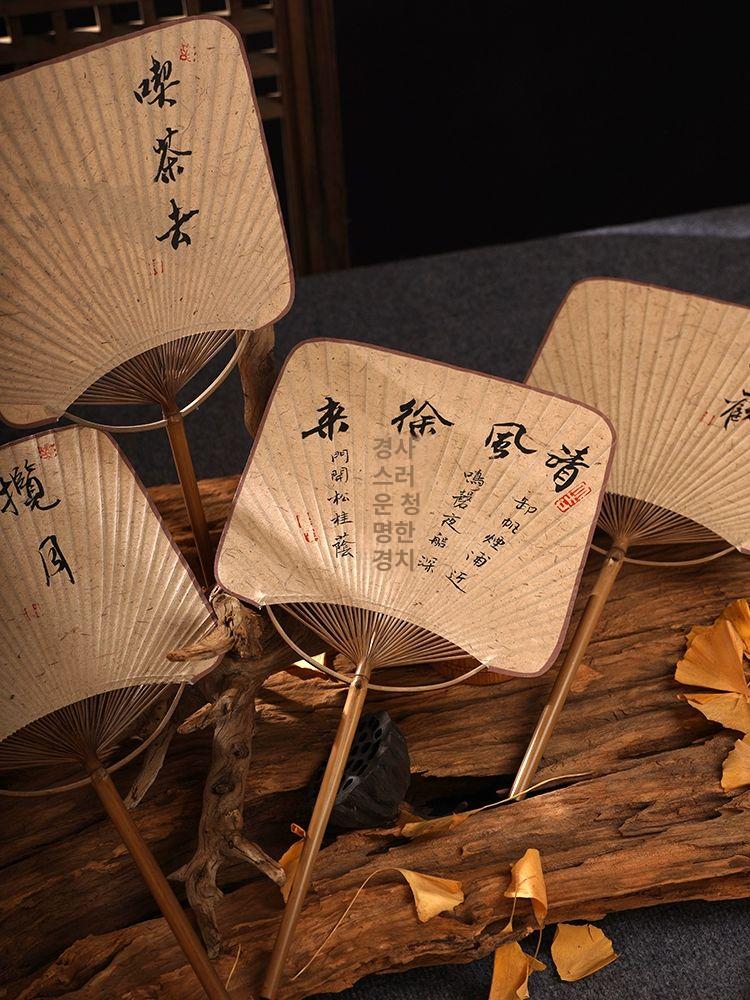 喫茶去
攬月
清風徐来
卸帆煙浦近
鳴磬夜船深
門開松桂蔭
경사
스러 청
운 한
명
경치